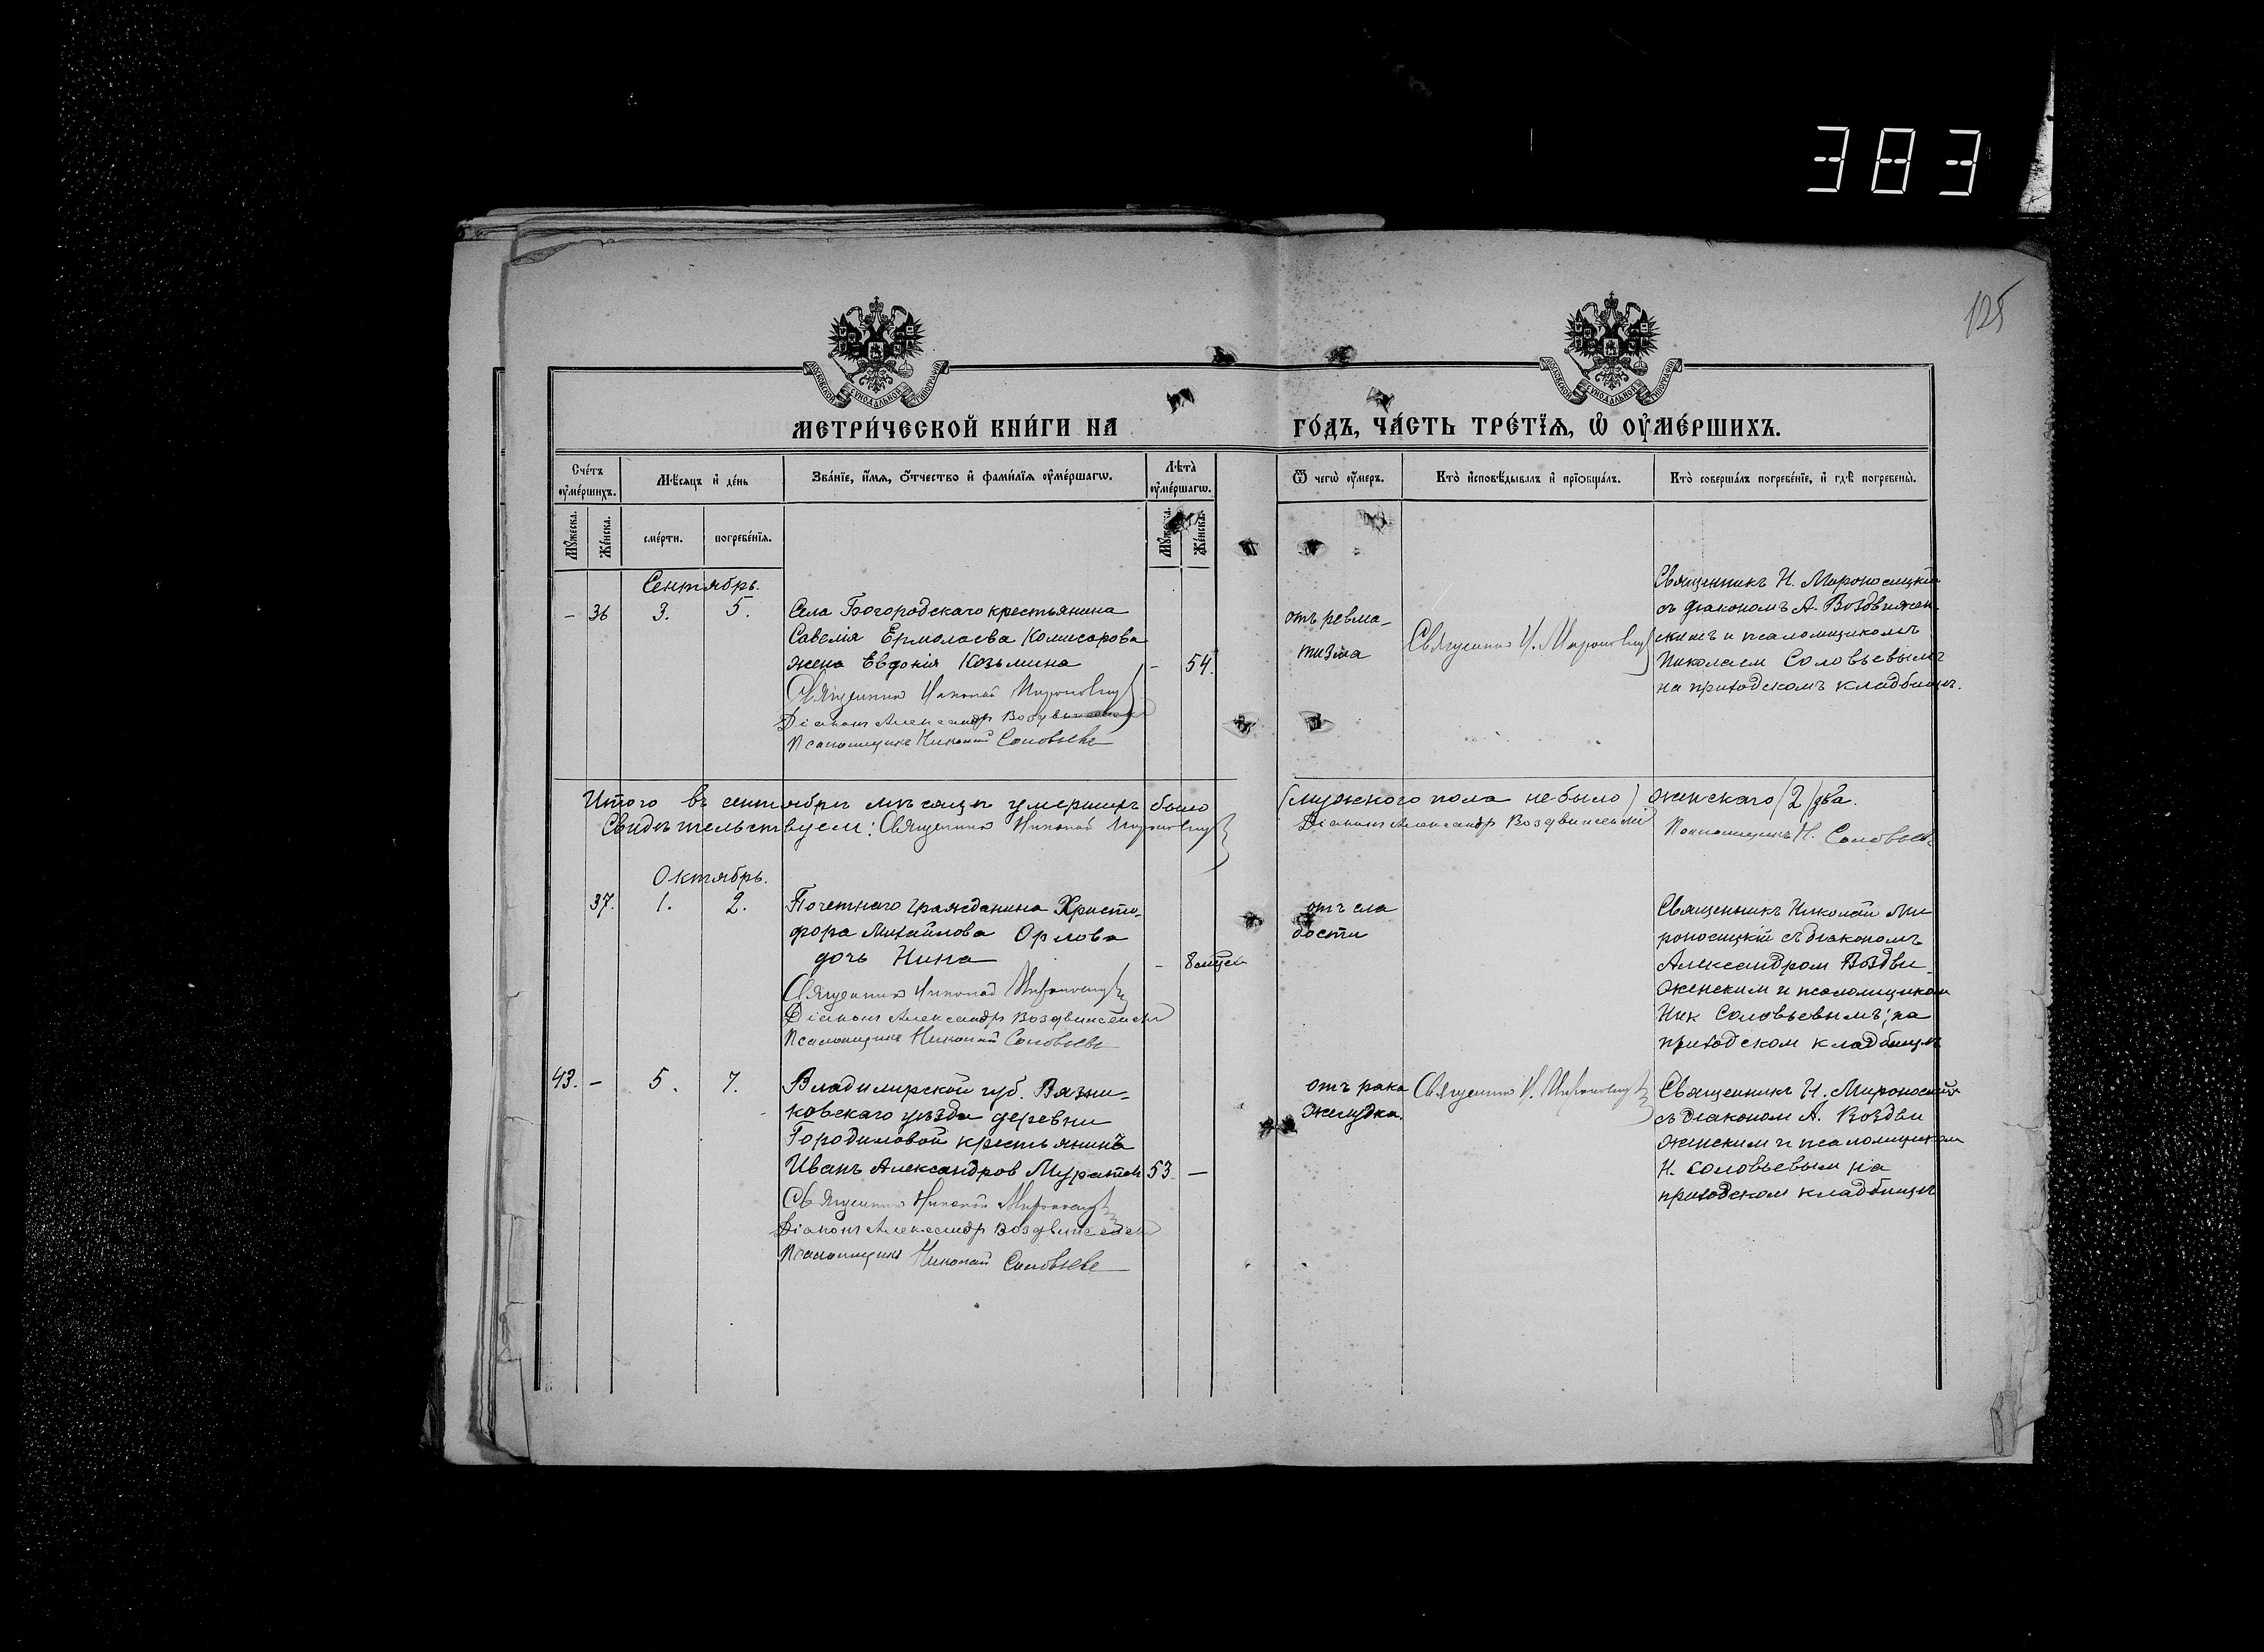 383
125
МОСКОВСКОЙ СѴНОДАЛЬНОЙ ТИПОГРАФІИ
МОСКОВСКОЙ СѴНОДАЛЬНОЙ ТИПОГРАФІИ
МЕТРИ́ЧЕСКОЙ КНИ́ГИ НА ГО́ДЪ, ЧА́СТЬ ТРЕ́ТЇѦ, Ѡ҆ ОУ҆МЕ́РШИХЪ.
Сче́тъ оу҆ме́ршихъ.
Мѣ́сяцъ и҆ де́нь
Зва́нїе, и҆́мѧ, ѻ҆́тчество и҆ фами́лїѧ оу҆ме́ршагѡ.
Лѣ́та̀ оу҆ме́ршагѡ.
Ѿ чегѡ̀ оу҆́меръ.
Кто̀ и҆сповѣ́дывалъ и҆ прїѡбща́лъ.
Кто̀ соверша́лъ погребе́нїе, и҆ гдѣ̀ погребены̀.
Мꙋ́жеска.
Же́нска.
сме́рти.
погребе́нїѧ.
Мꙋ́жеска.
Же́нска.
Сентябрь.
– 36 3. 5.
Села Богородскаго крестьянина
Савелія Ермолаева Комисарова
жена Евдокія Козьмина – 54.
Священникъ Николай Мироносицкій
Діаконъ Александръ Воздвиженскій
Псаломщикъ Николай Соловьевъ
отъ ревма-
тизма
Священникъ Н. Мироносицкій
Священникъ Н. Мироносицкій
съ діакономъ А. Воздвижен-
скимъ и псаломщикомъ
Николаем Соловьевымъ
на приходскомъ кладбищѣ.
Итого въ сентябрѣ мѣсяцѣ умершихъ было (мужского пола не было) женскаго (2) два.
Свидѣтельствуем: Священникъ Николай Мироносицкій Діаконъ Александръ Воздвиженскій Псаломщикъ Н. Соловьевъ
Октябрь.
37. 1. 2.
Почетнаго гражданина Христо-
фора Михайлова Орлова
дочь Нина – 8 мѣсяц
Священникъ Николай Мироносицкій
Діаконъ Александръ Воздвиженскій
Псаломщикъ Николай Соловьевъ
отъ сла
бости
Священникъ Николай Ми
роносицкій съ діакономъ
Александром Воздви-
женским и псаломщиком
Ник Соловьевымъ; на
приходском кладбищѣ
43. – 5. 7.
Владимирской губ. Вязни-
ковскаго уѣзда деревни
Городиловой крестьянинъ
Иванъ Александров Муратов 53 –
Священникъ Николай Мироносицкій
Діаконъ Александръ Воздвиженскій
Псаломщикъ Николай Соловьевъ
отъ рака
желудка.
Священникъ Н. Мироносицкій
Священникъ Н. Мироносицкій
съ діаконом А. Воздви
женским и псаломщиком
Н. Соловьевым на
приходском кладбищѣ